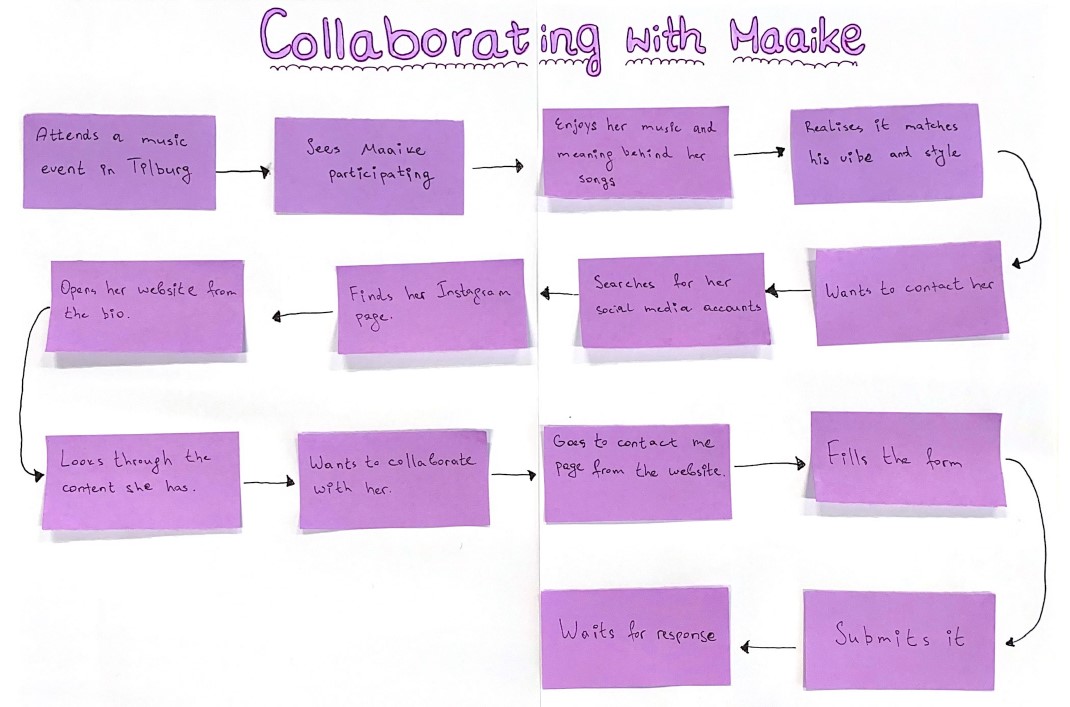 Collaborating with Maaike
Attends a music
event in Tilburg
Sees Maaike
participating
Enjoys her music and
meaning behind her
songs
Realises it matches
his vibe and style
Wants to contact her
Searches for her
social media accounts
Finds her Instagram
page.
Opens her website from
the bio.
Looks through the
content she has.
Wants to collaborate
with her.
Goes to contact me
page from the website.
Fills the form
Submits it
Waits for response